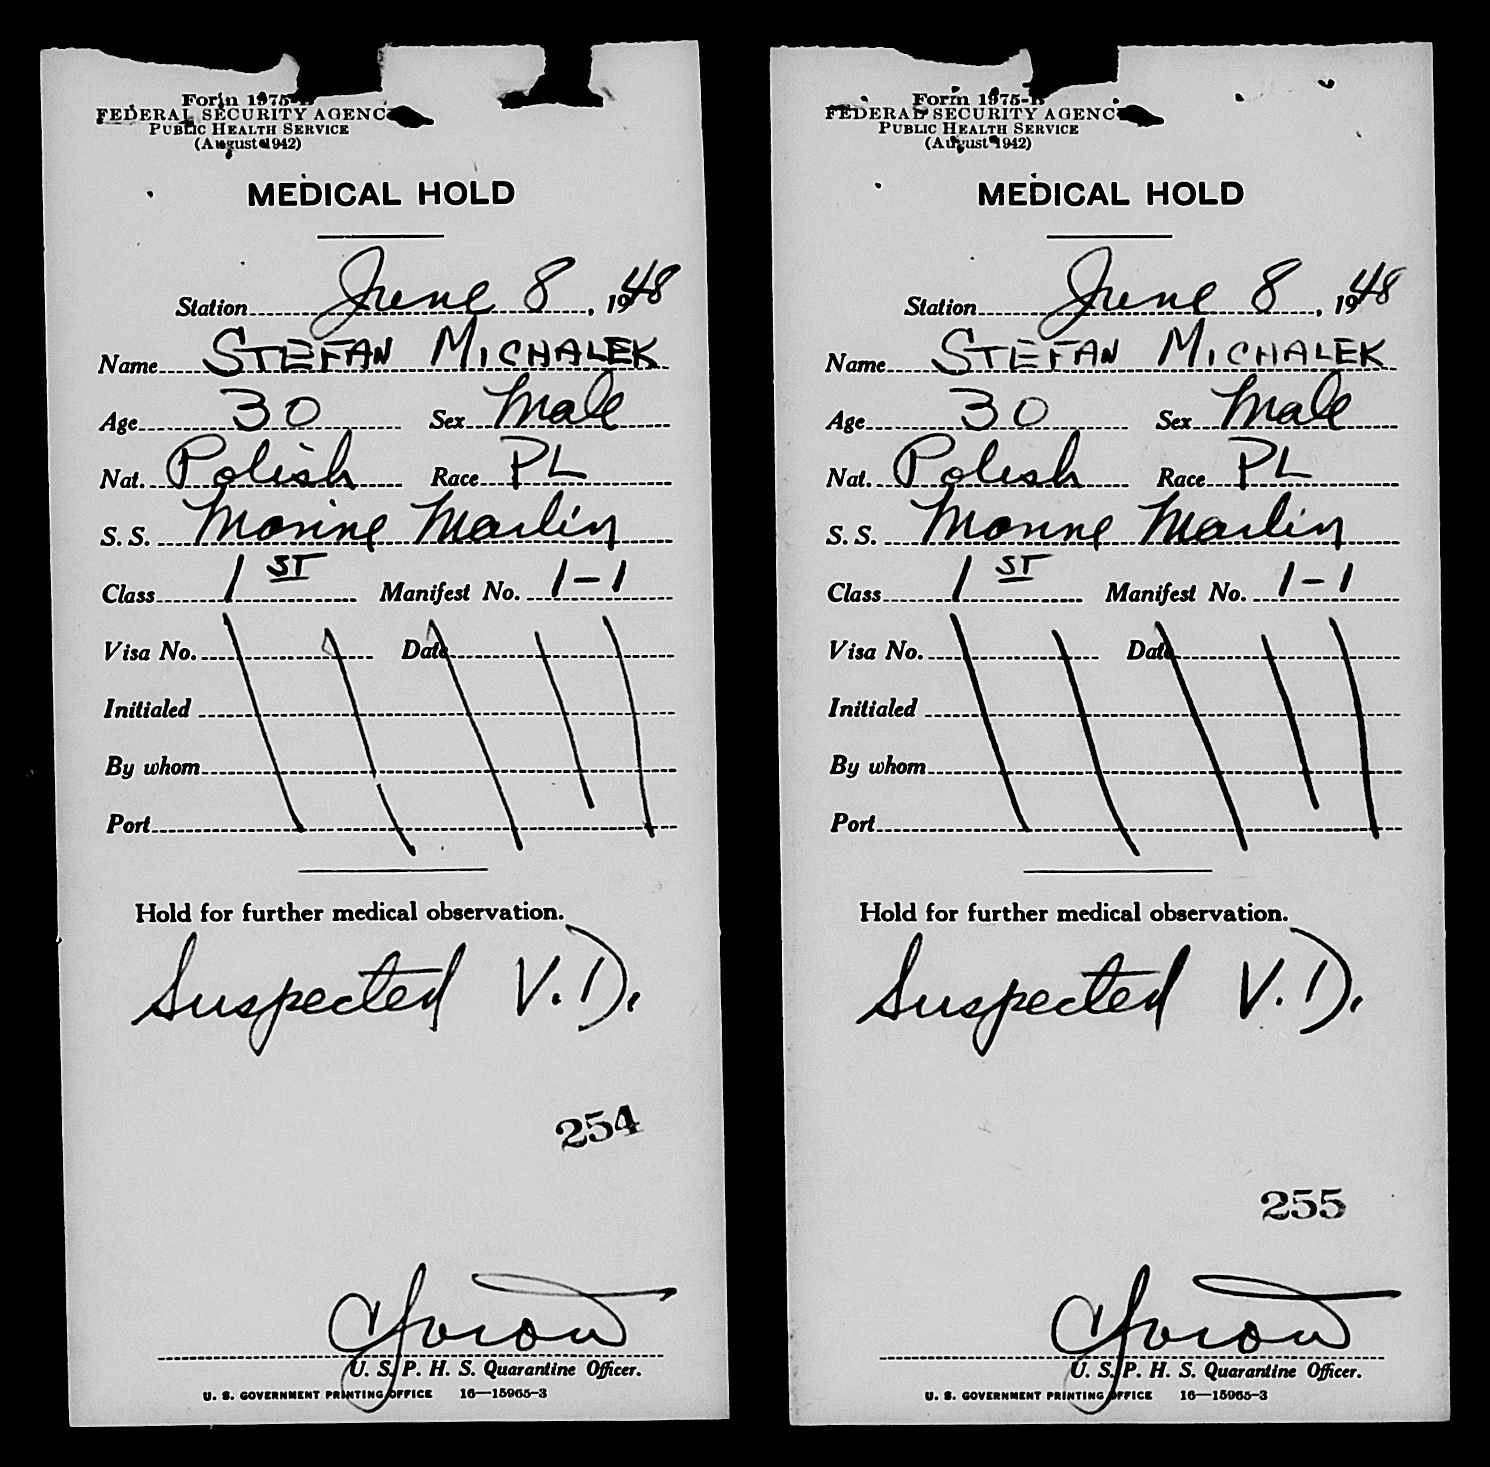 Form 1975-B
FEDERAL SECURITY AGENC
PUBLIC HEALTH SERVICE
(August 1942)
MEDICAL HOLD
Station June 8, 1948
Name STEFAN MICHALEK
Age 30 Sex Male
Nat. Polish Race PL
S. S. Marine Marlin
Class 1ST Manifest No. 1-1
Visa No. Date
Initialed
By whom
Port
Hold for further medical observation.
Suspected V.D.
254
U. S. P. H. S. Quarantine Officer.
U. S. GOVERNMENT PRINTING OFFICE 16—15965-3
Form 1975-B
FEDERAL SECURITY AGENC
PUBLIC HEALTH SERVICE
(August 1942)
MEDICAL HOLD
Station June 8, 1948
Name STEFAN MICHALEK
Age 30 Sex Male
Nat. Polish Race PL
S. S. Marine Marlin
Class 1ST Manifest No. 1-1
Visa No. Date
Initialed
By whom
Port
Hold for further medical observation.
Suspected V.D.
255
U. S. P. H. S. Quarantine Officer.
U. S. GOVERNMENT PRINTING OFFICE 16—15965-3